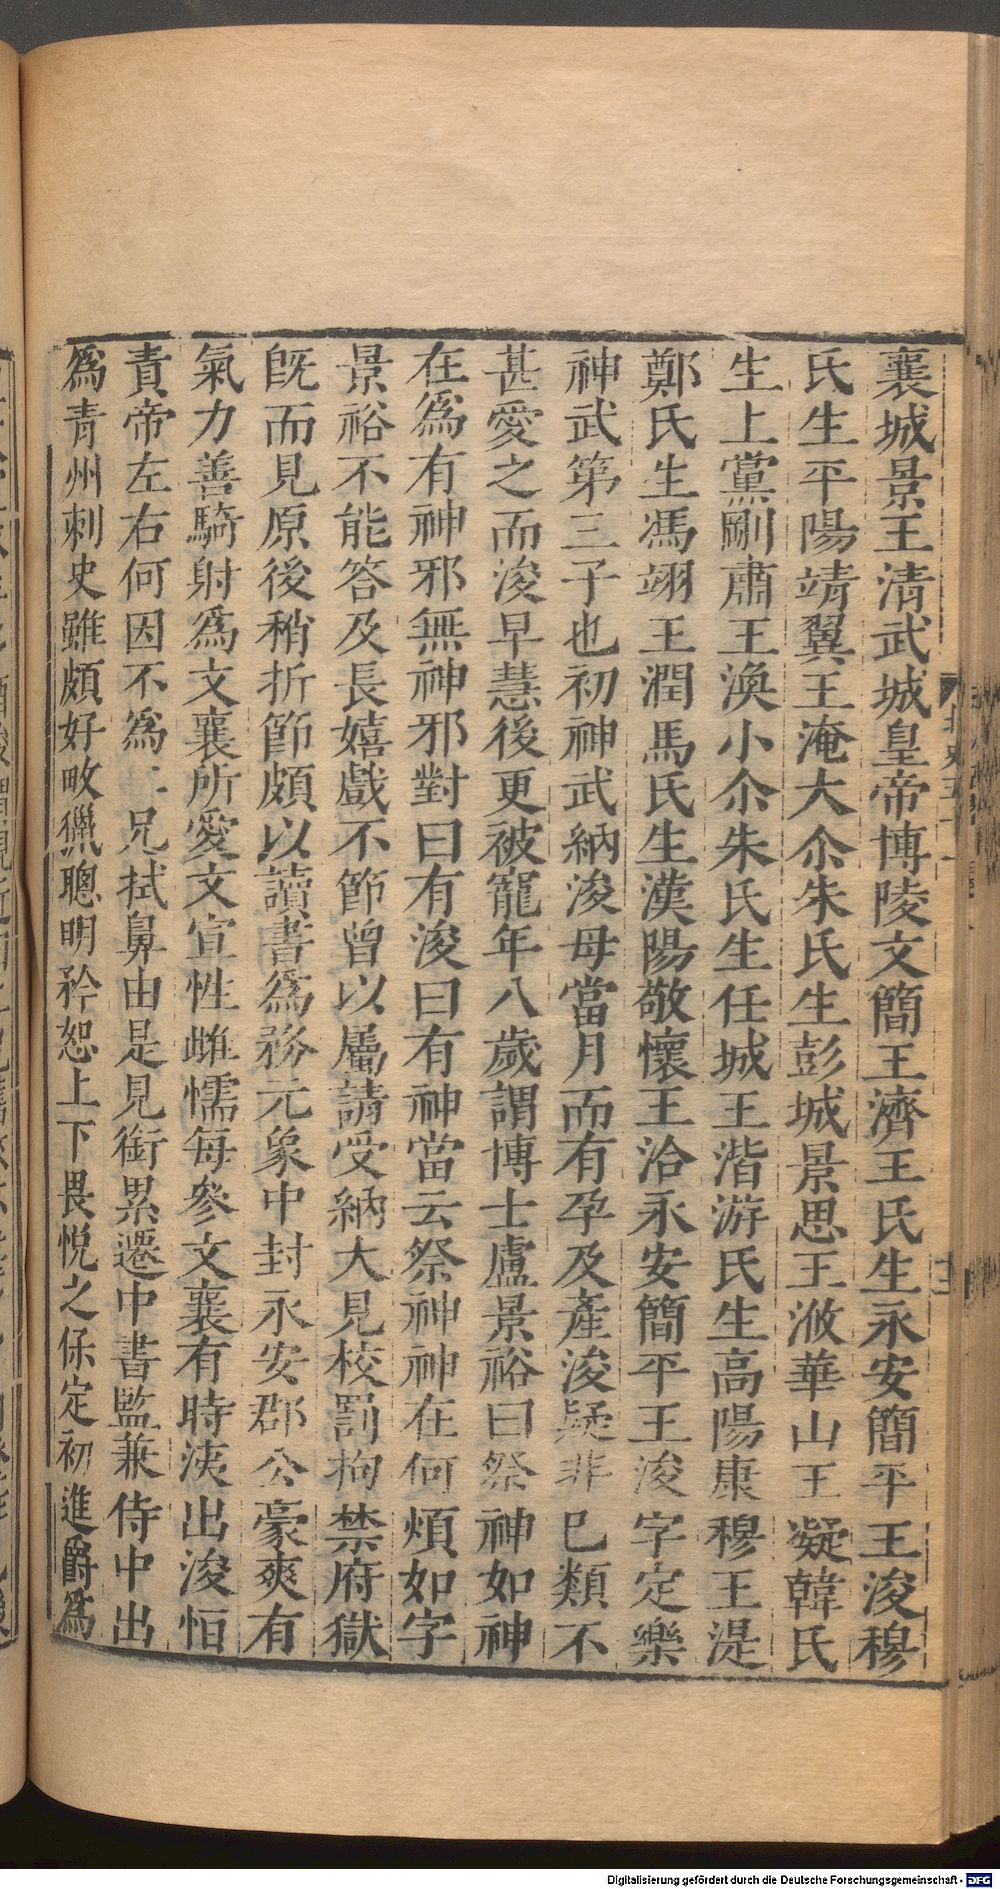 襄城景王淸武城皇帝博陵文簡王濟王氏生永安簡平王浚穆
氏生平陽靖翼王淹大尒朱氏生彭城景思王浟華山王凝韓氏
生上黨剛肅王渙小尒朱氏生任城王湝游氏生高陽康穆王湜
鄭氏生馮翊王潤馬氏生漢陽敬懷王洽永安簡平王浚字定樂
神武第三子也初神武納浚母當月而有孕及產浚疑非已類不
甚愛之而浚早慧後更被寵年八歲謂博士盧景裕曰祭神如神
在爲有神邪無神邪對曰有浚曰有神當云祭神神在何煩如字
景裕不能答及長嬉戲不節曾以屬請受納大見杖罰拘禁府獄
旣而見原後稍折節頗以讀書爲務元象中封永安郡公豪爽有
氣力善騎射爲文襄所愛文宣性雌懦每參文襄有時洟出浚恒
責帝左右何因不爲二兄拭鼻由是見銜累遷中書監兼侍中出
爲青州刺史雖頗好畋獵聰明矜恕上下畏悅之保定初進爵爲
Digitalisierung gefördert durch die Deutsche Forschungsgemeinschaft - DFG